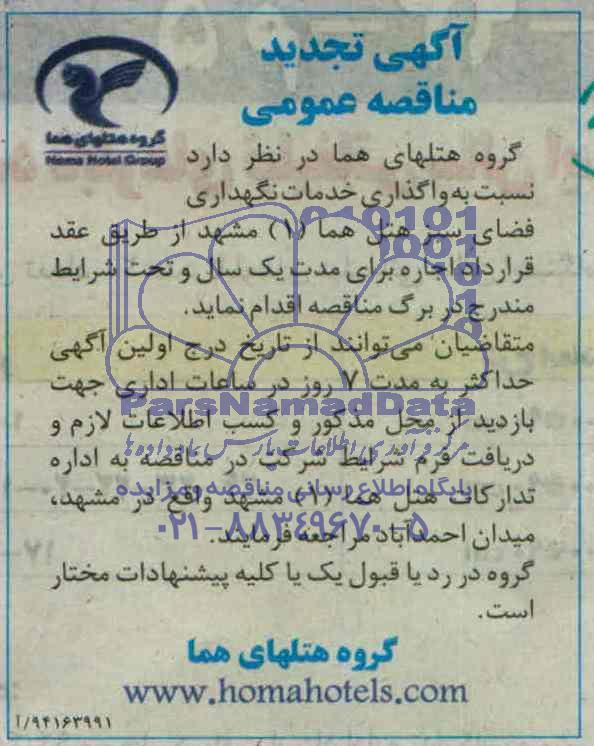 آگهی تجدید
مناقصه عمومی
گروه هتلهای هما
Homa Hotel Group
گروه هتلهای هما در نظر دارد
نسبت به واگذاری خدمات نگهداری
فضای سبز هتل هما (۱) مشهد از طریق عقد
قرارداد اجاره برای مدت یک سال و تحت شرایط
مندرج در برگ مناقصه اقدام نماید.
متقاضیان می‌توانند از تاریخ درج اولین آگهی
حداکثر به مدت ۷ روز در ساعات اداری جهت
بازدید از محل مذکور و کسب اطلاعات لازم و
دریافت فرم شرایط شرکت در مناقصه به اداره
تدارکات هتل هما (۱) مشهد واقع در مشهد،
میدان احمدآباد مراجعه فرمایند.
گروه در رد یا قبول یک یا کلیه پیشنهادات مختار
است.
گروه هتلهای هما
www.homahotels.com
۹۴۱۶۳۹۹۱/آ
ParsNamadData
مرکز فرآوری اطلاعات پارس نماد داده ها
پایگاه اطلاع رسانی مناقصه و مزایده
۰۲۱-۸۸۳۴۹۶۷۰-۵